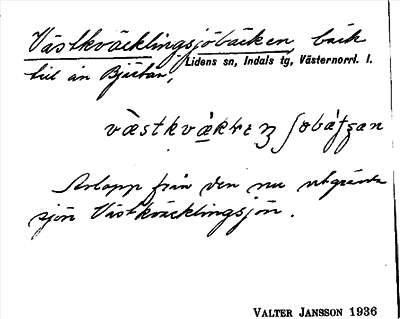 Västkväcklingsjöbäcken, bäck
till ån Bjästan,
Lidens sn, Indals tg, Västernorrl. l.
Avlopp från den nu utgrävda
sjön Västkväcklingsjön.
VALTER JANSSON 1936